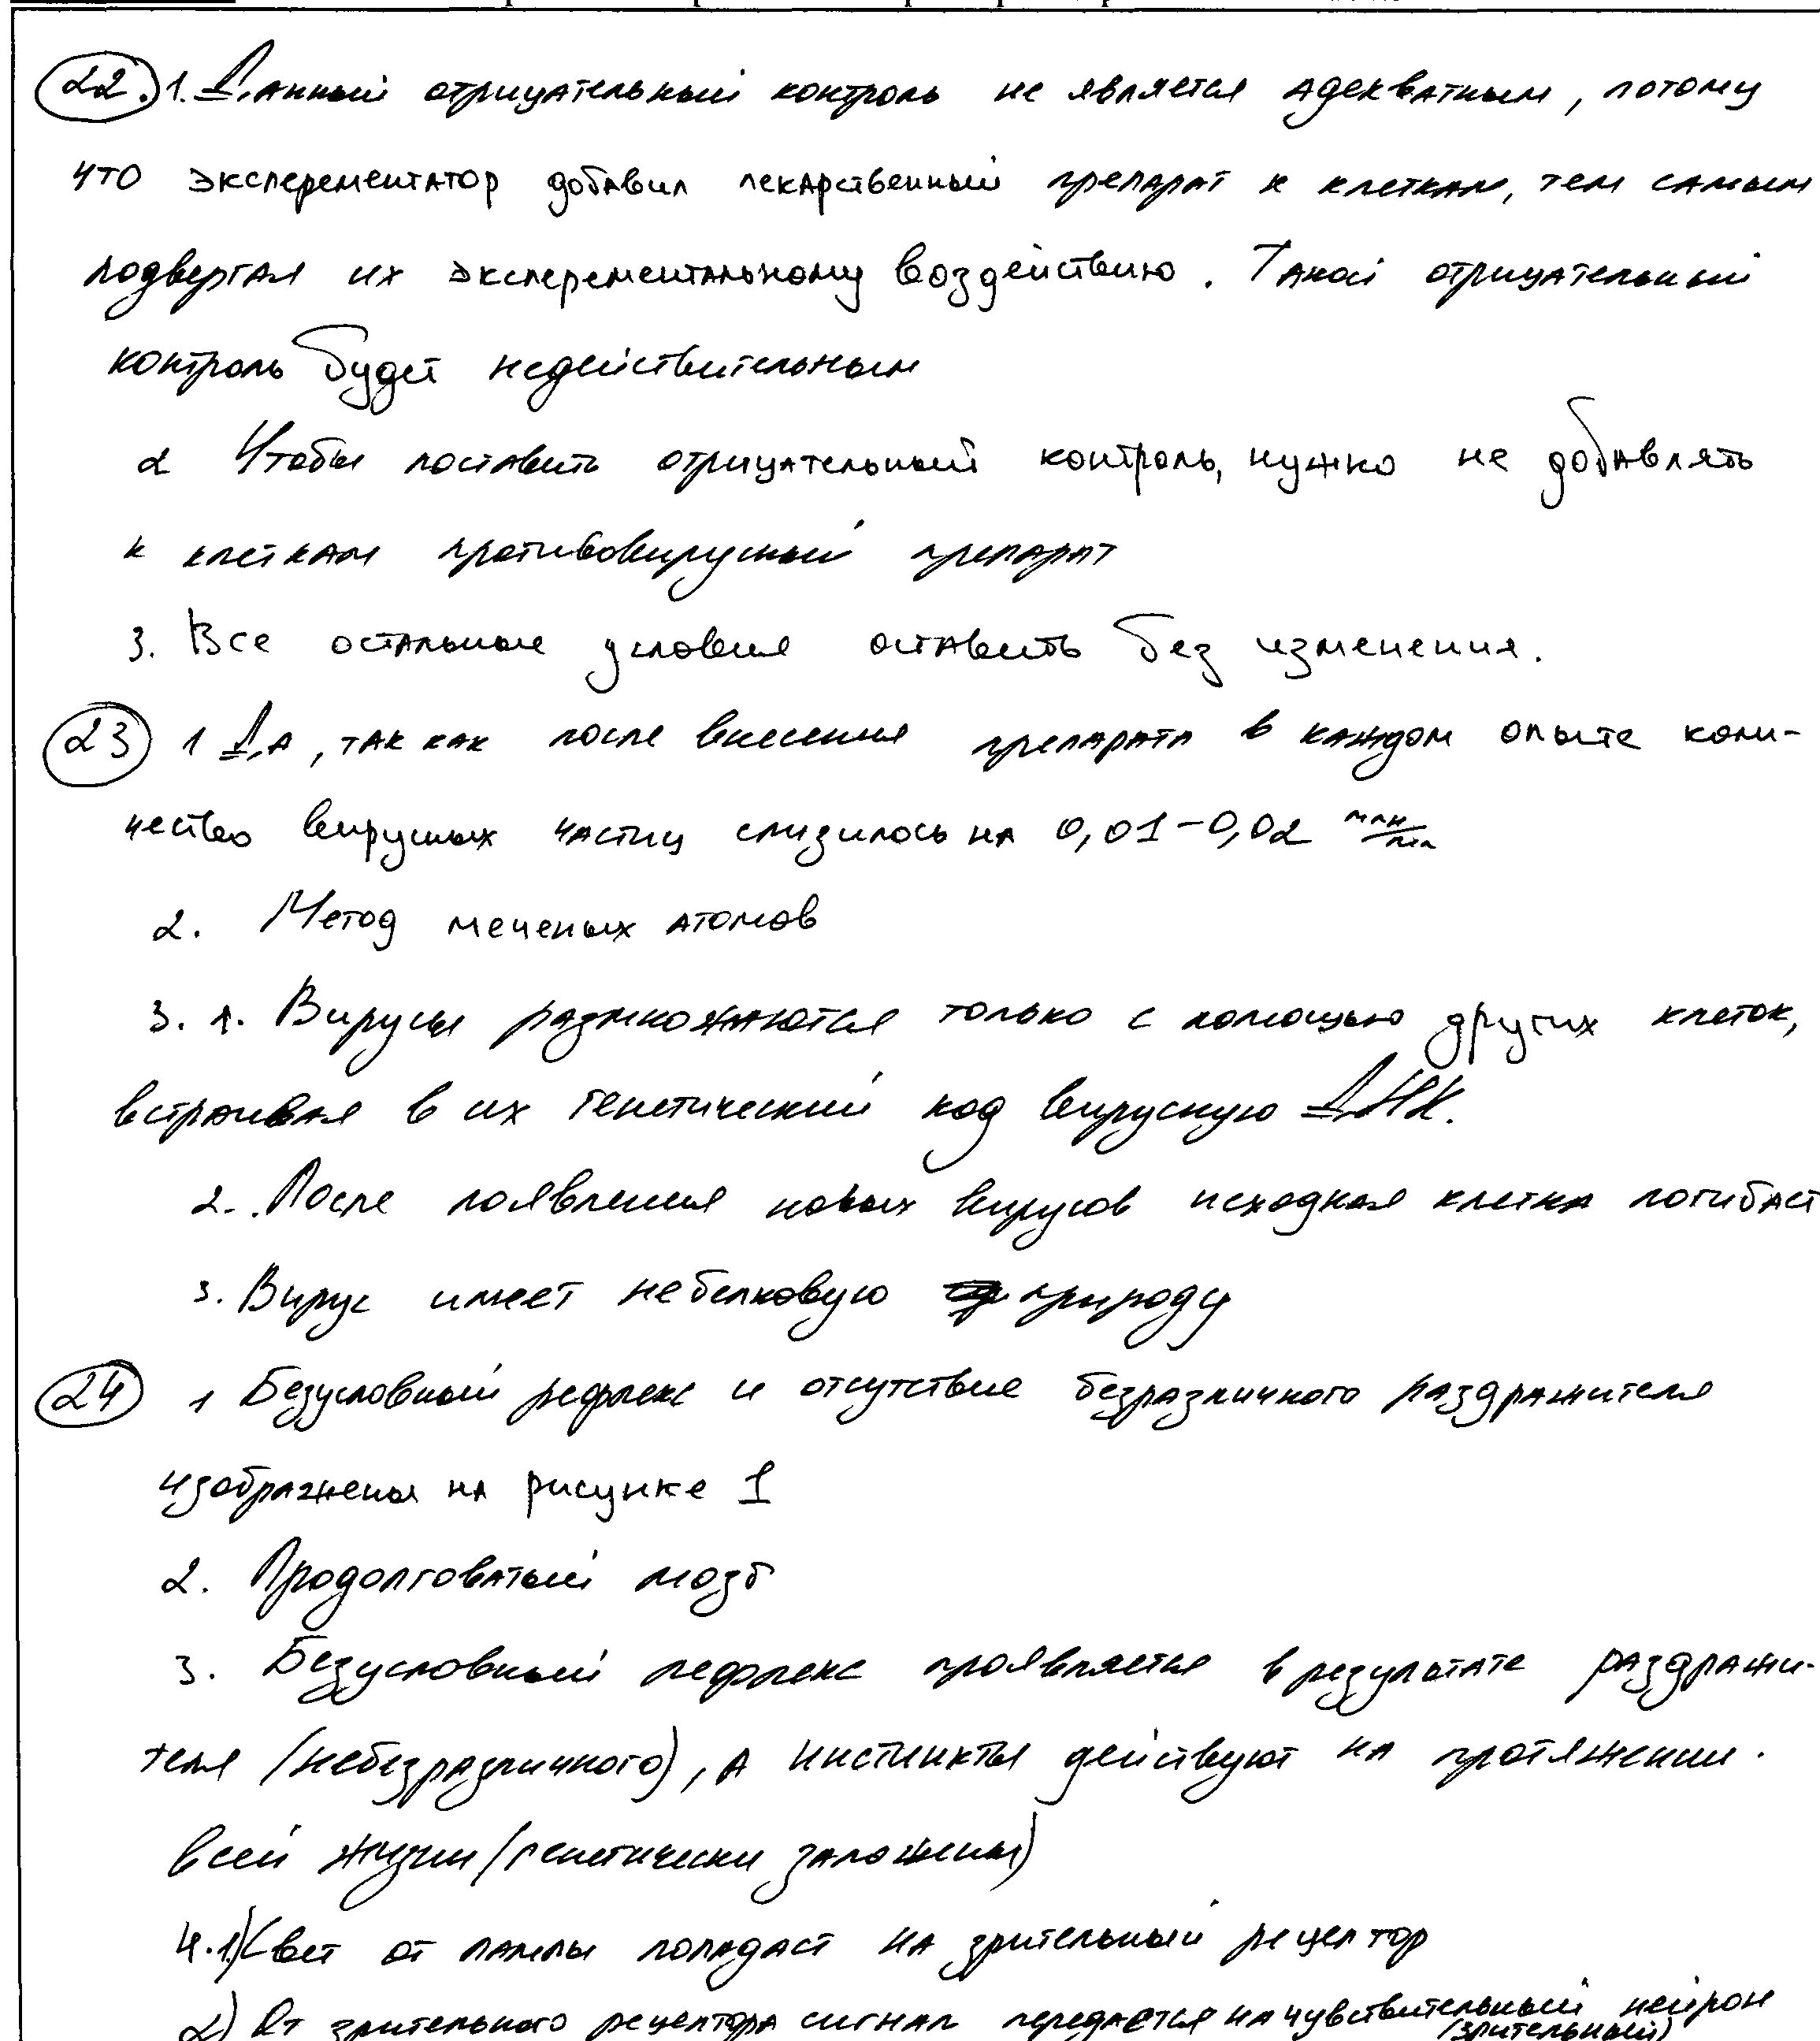 22. 1. Данный отрицательный контроль не является адекватным, потому
что эксперементатор добавил лекарственный препарат к клеткам, тем самым
подвергая их эксперементальному воздействию. Такой отрицательный
контроль будет недействительным
2 Чтобы поставить отрицательный контроль, нужно не добавлять
к клеткам противовирусный препарат
3. Все остальные условия оставить без изменения.
23 1 Да, так как после внесения препарата в каждом опыте коли-
чество вирусных частиц снизилось на 0,01-0,02 млн/мл
2. Метод меченых атомов
3. 1. Вирусы размножаются только с помощью других клеток,
встраивая в их генетический код вирусную ДНК.
2. После появления новых вирусов исходная клетка погибает
3. Вирус имеет небелковую природу
24 1 Безусловный рефлекс и отсутствие безразличного раздражителя
изображены на рисунке 1
2. Продолговатый мозг
3. Безусловный рефлекс проявляется в результате раздражи-
теля (небезразличного), а инстинкты действуют на протяжении
всей жизни (генетически заложены)
4. 1) Свет от лампы попадает на зрительный рецептор
2) От зрительного рецептора сигнал передается на чувствительный нейрон
(зрительный)